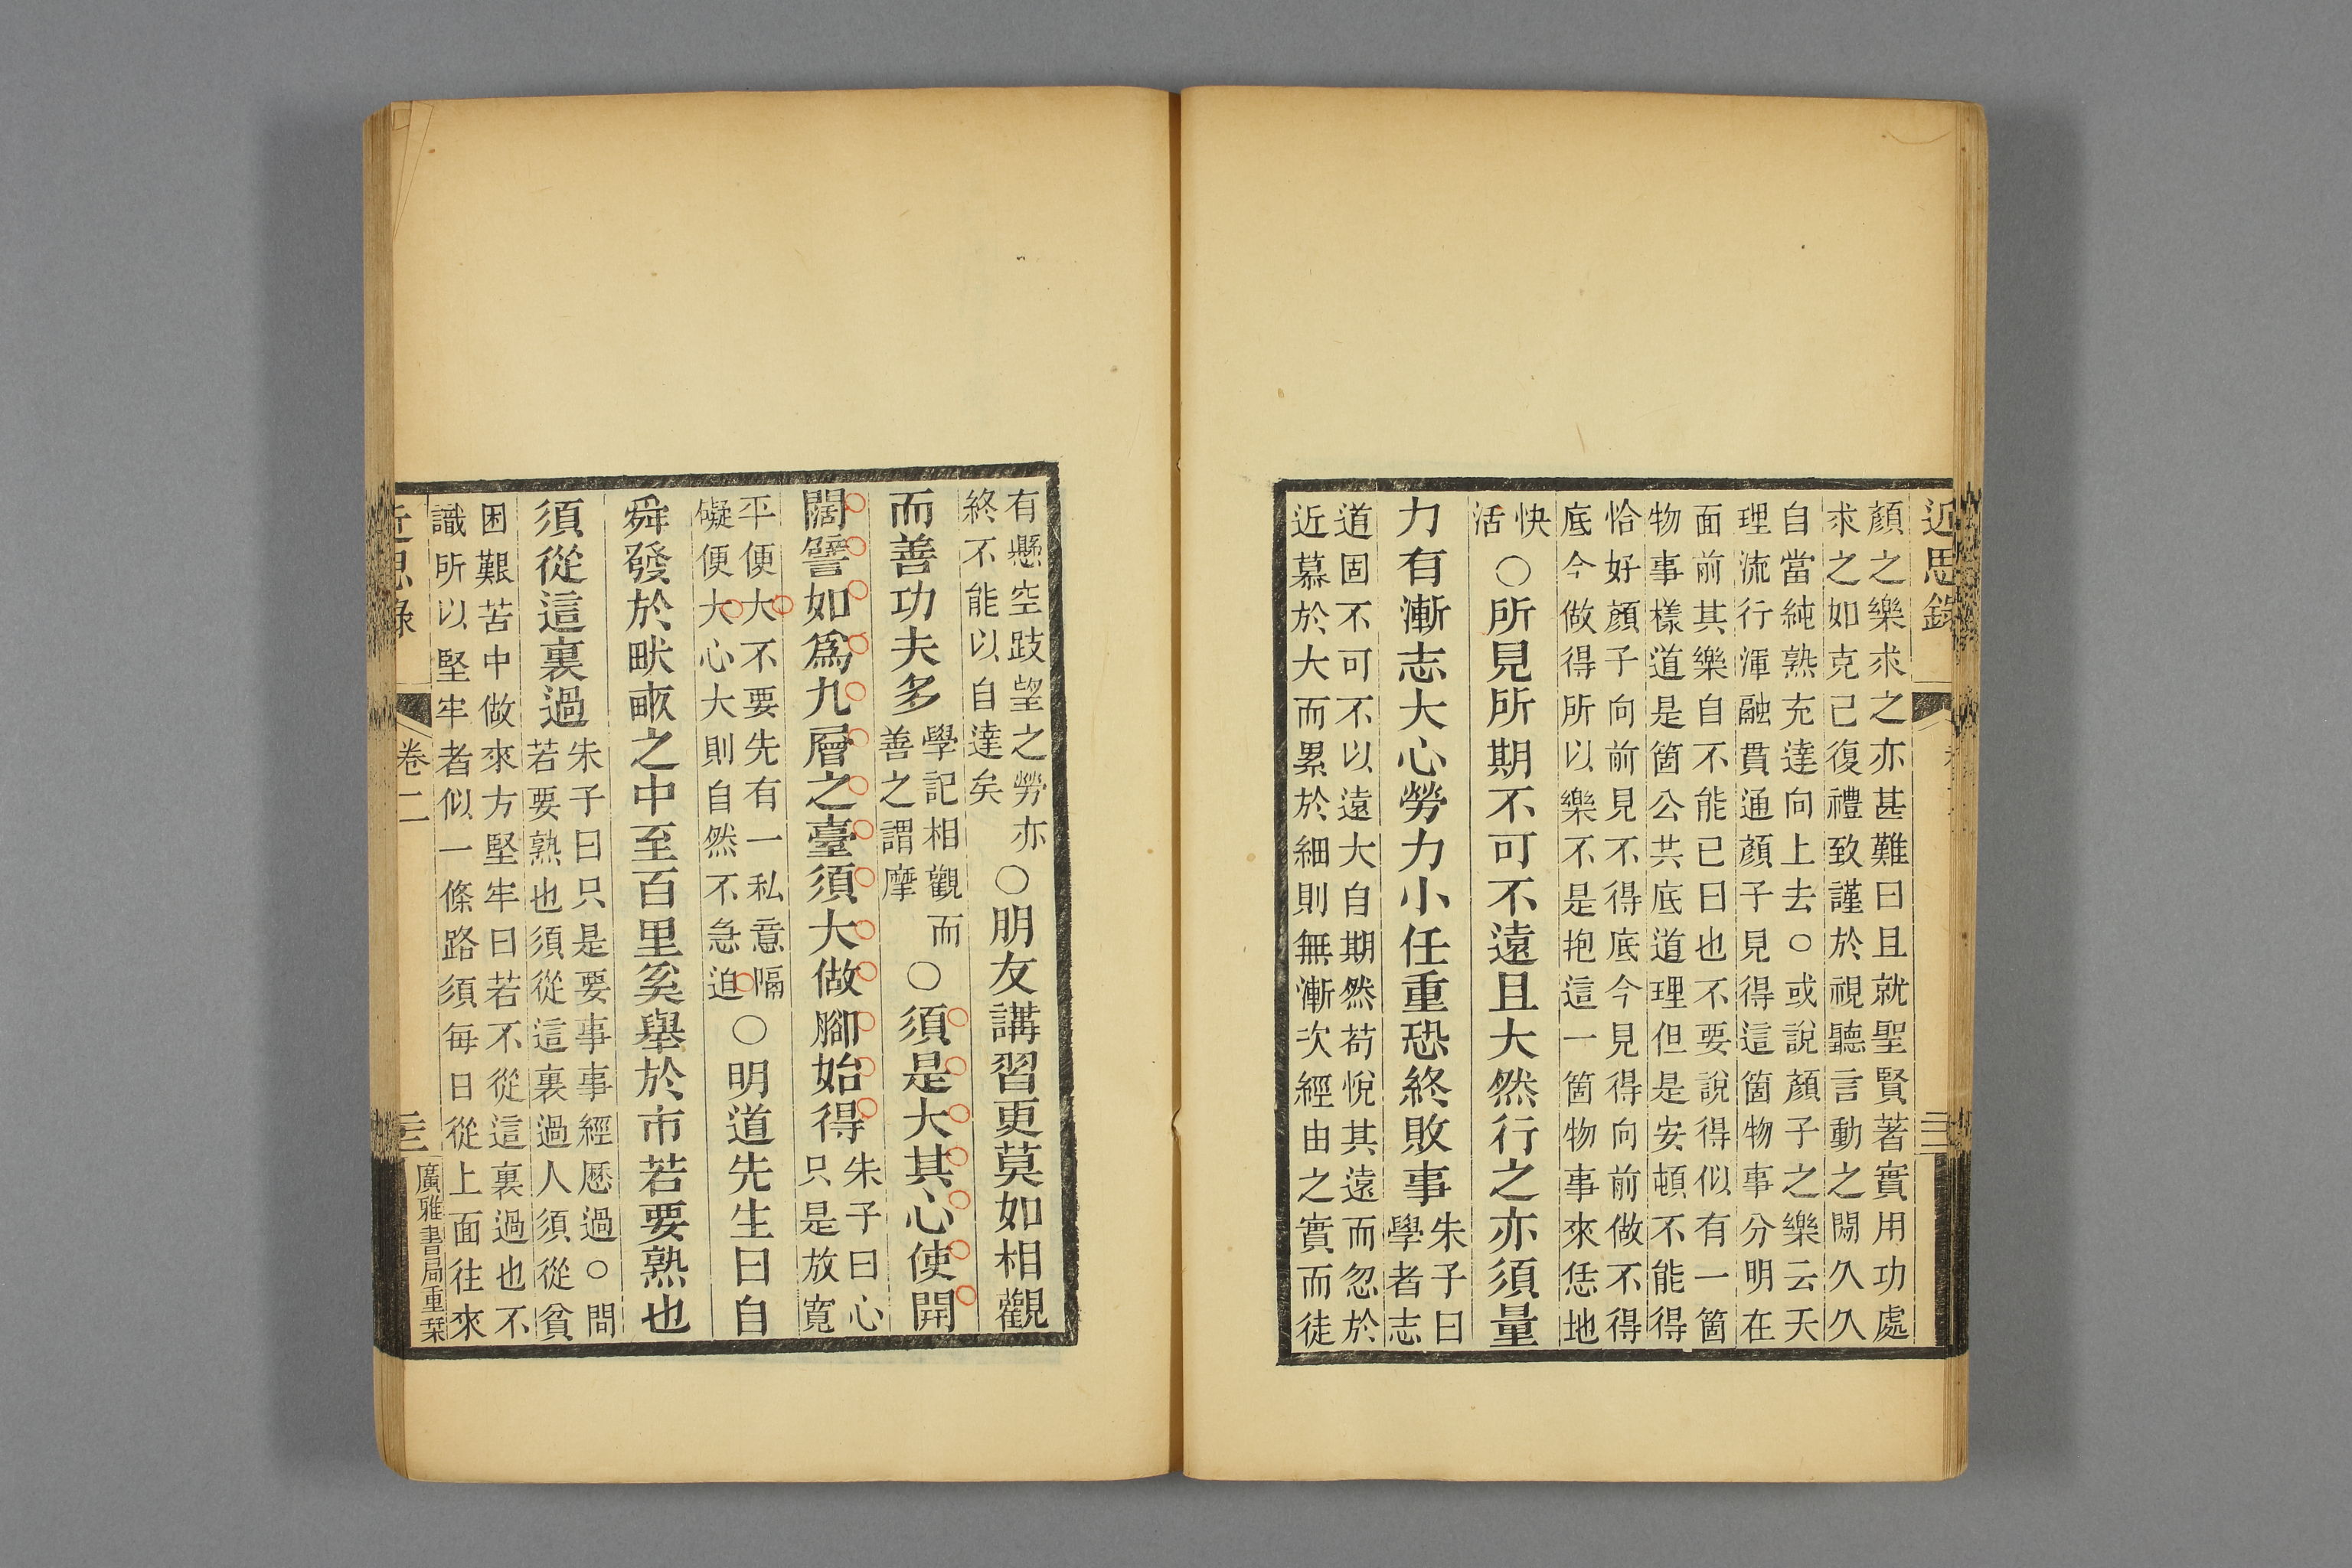 近思錄
顏之樂求之亦甚難曰且就聖賢著實用功處
求之如克己復禮致謹於視聽言動之閒久久
自當純熟充達向上去○或說顏子之樂云天
理流行渾融貫通顏子見得這箇物事分明在
面前其樂自不能已曰也不要說得似有一箇
物事樣道是箇公共底道理但是安頓不能得
恰好顏子向前見不得底今見得向前做不得
底今做得所以樂不是抱這一箇物事來恁地
快
活
○所見所期不可不遠且大然行之亦須量
力有漸志大心勞力小任重恐終敗事
朱子曰
學者志
道固不可不以遠大自期然苟悅其遠而忽於
近慕於大而累於細則無漸次經由之實而徒
有懸空跂望之勞亦
終不能以自達矣
○朋友講習更莫如相觀
而善功夫多
學記相觀而
善之謂摩
○須是大其心使開
闊譬如爲九層之臺須大做腳始得
朱子曰心
只是放寬
平便大不要先有一私意隔
礙便大心大則自然不急迫
○明道先生曰自
舜發於畎畝之中至百里奚舉於市若要熟也
須從這裏過
朱子曰只是要事事經歷過○問
若要熟也須從這裏過人須從貧
困艱苦中做來方堅牢曰若不從這裏過也不
識所以堅牢者似一條路須每日從上面往來
近思錄
卷二
廣雅書局重栞